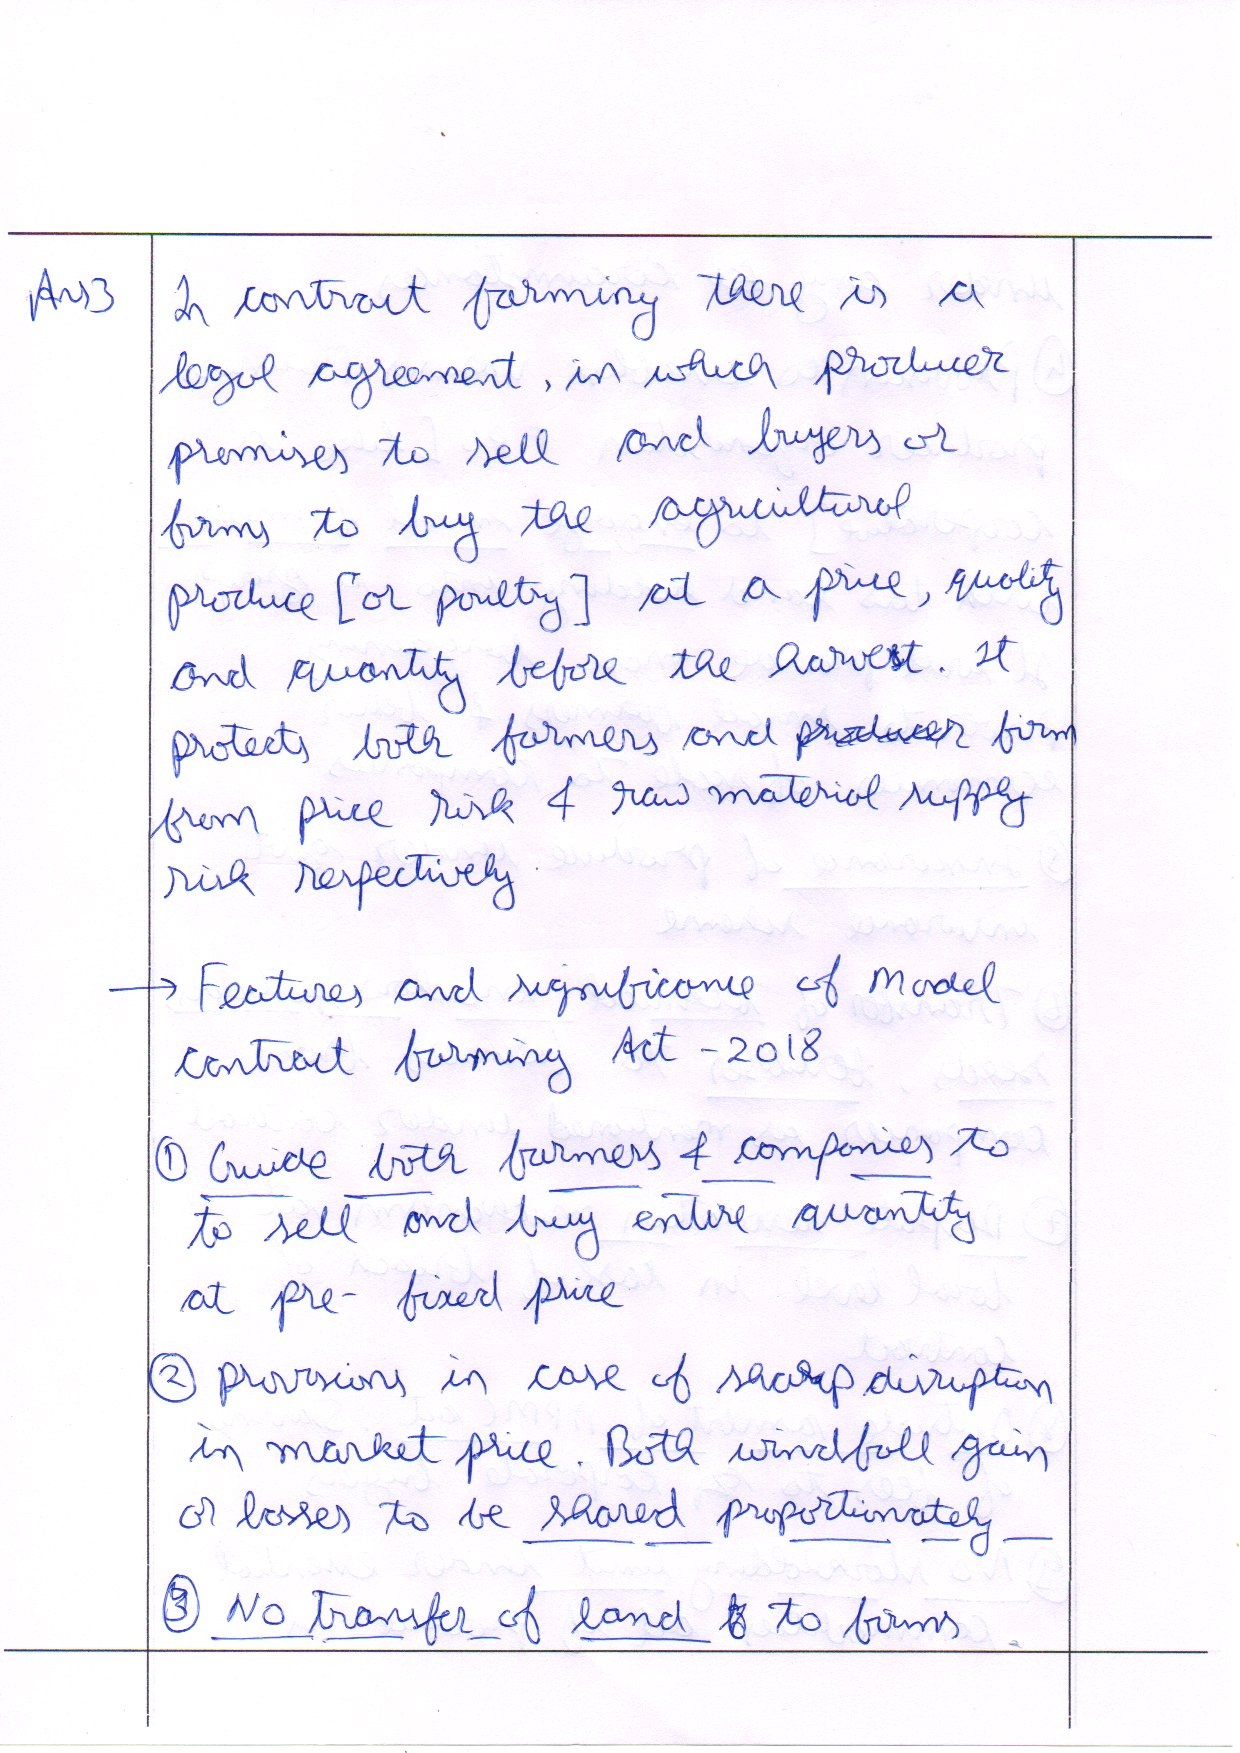 Ans3
In contract farming there is a
legal agreement, in which producer
promises to sell and buyers or
firms to buy the agricultural
produce [or poultry] at a price, quality
and quantity before the harvest. It
protects both farmers and producer firm
from price risk & raw material supply
risk respectively.
→ Features and significance of Model
contract farming Act - 2018
① Guide both farmers & companies to
to sell and buy entire quantity
at pre-fixed price
② provisions in case of sharp disruption
in market price. Both windfall gain
or losses to be shared proportionately
③ No transfer of land to firms.